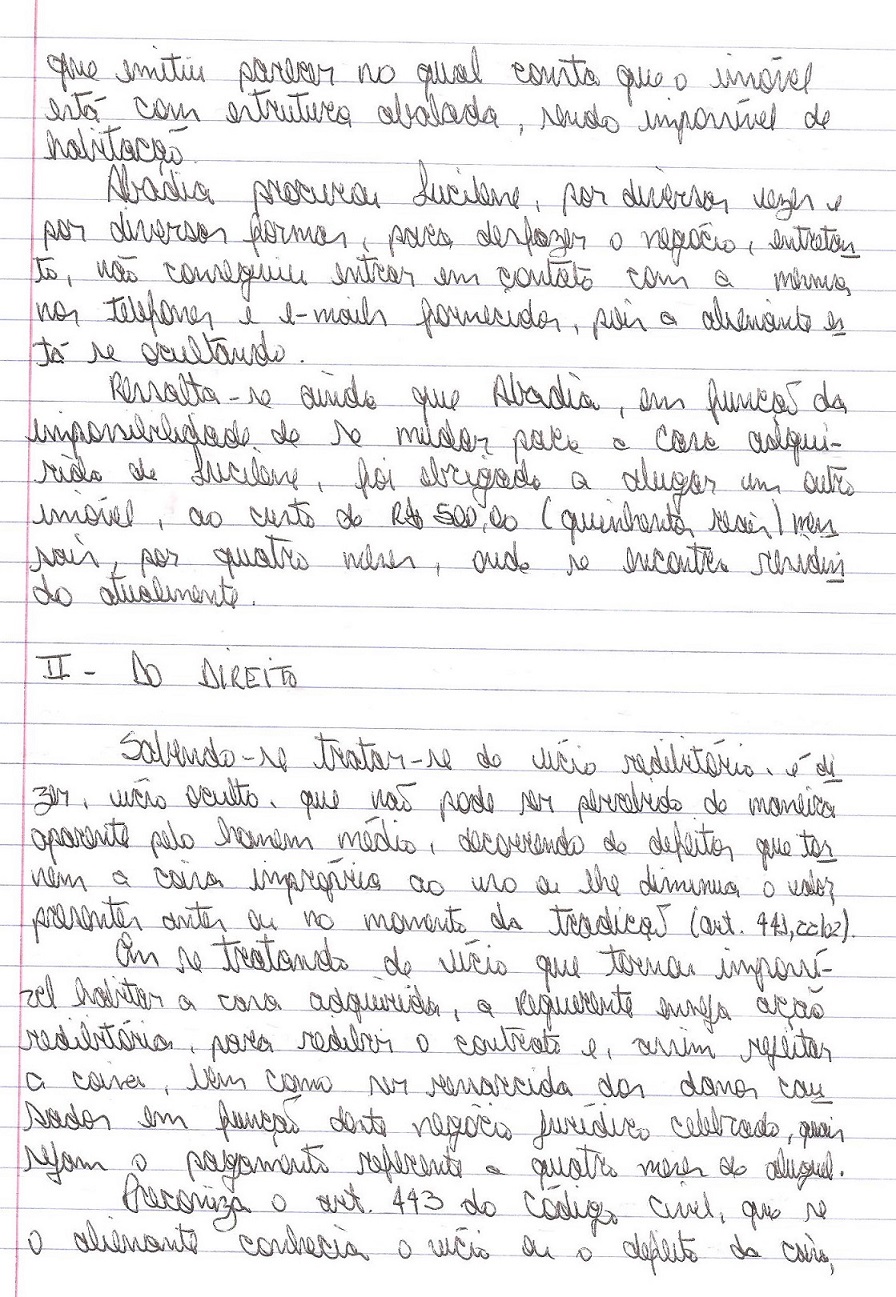 que emitiu parecer no qual consta que o imóvel
está com estrutura abalada, sendo impossível de
habitação.
Abadia procurou Lucilene, por diversas vezes e
por diversas formas, para desfazer o negócio, entretan
to, não conseguiu entrar em contato com a mesma
nos telefones e e-mails fornecidos, pois a alienante es
tá se ocultando.
Ressalta-se ainda que Abadia, em função da
impossibilidade de se mudar para a casa adqui-
rida de Lucilene, foi obrigada a alugar um outro
imóvel, ao custo de R$ 500,00 (quinhentos reais) men
sais, por quatro meses, onde se encontra residin
do atualmente.
II - DO DIREITO
Sabendo-se tratar-se de vício redibitório, é di
zer, vício oculto, que não pode ser percebido de maneira
aparente pelo homem médio, decorrendo de defeitos que tor
nem a coisa imprópria ao uso ou lhe diminua o valor,
presentes antes ou no momento da tradição (art. 441, ccb02).
Em se tratando de vício que tornou impossí-
vel habitar a casa adquirida, a requerente enseja ação
redibitória, para redibir o contrato e, assim rejeitar
a coisa, bem como ser ressarcida dos danos cau
sados em função deste negócio jurídico celebrado, quais
sejam o pagamento referente a quatro meses de aluguel.
Preconiza o art. 443 do Código Civil, que se
o alienante conhecia o vício ou o defeito da coisa,